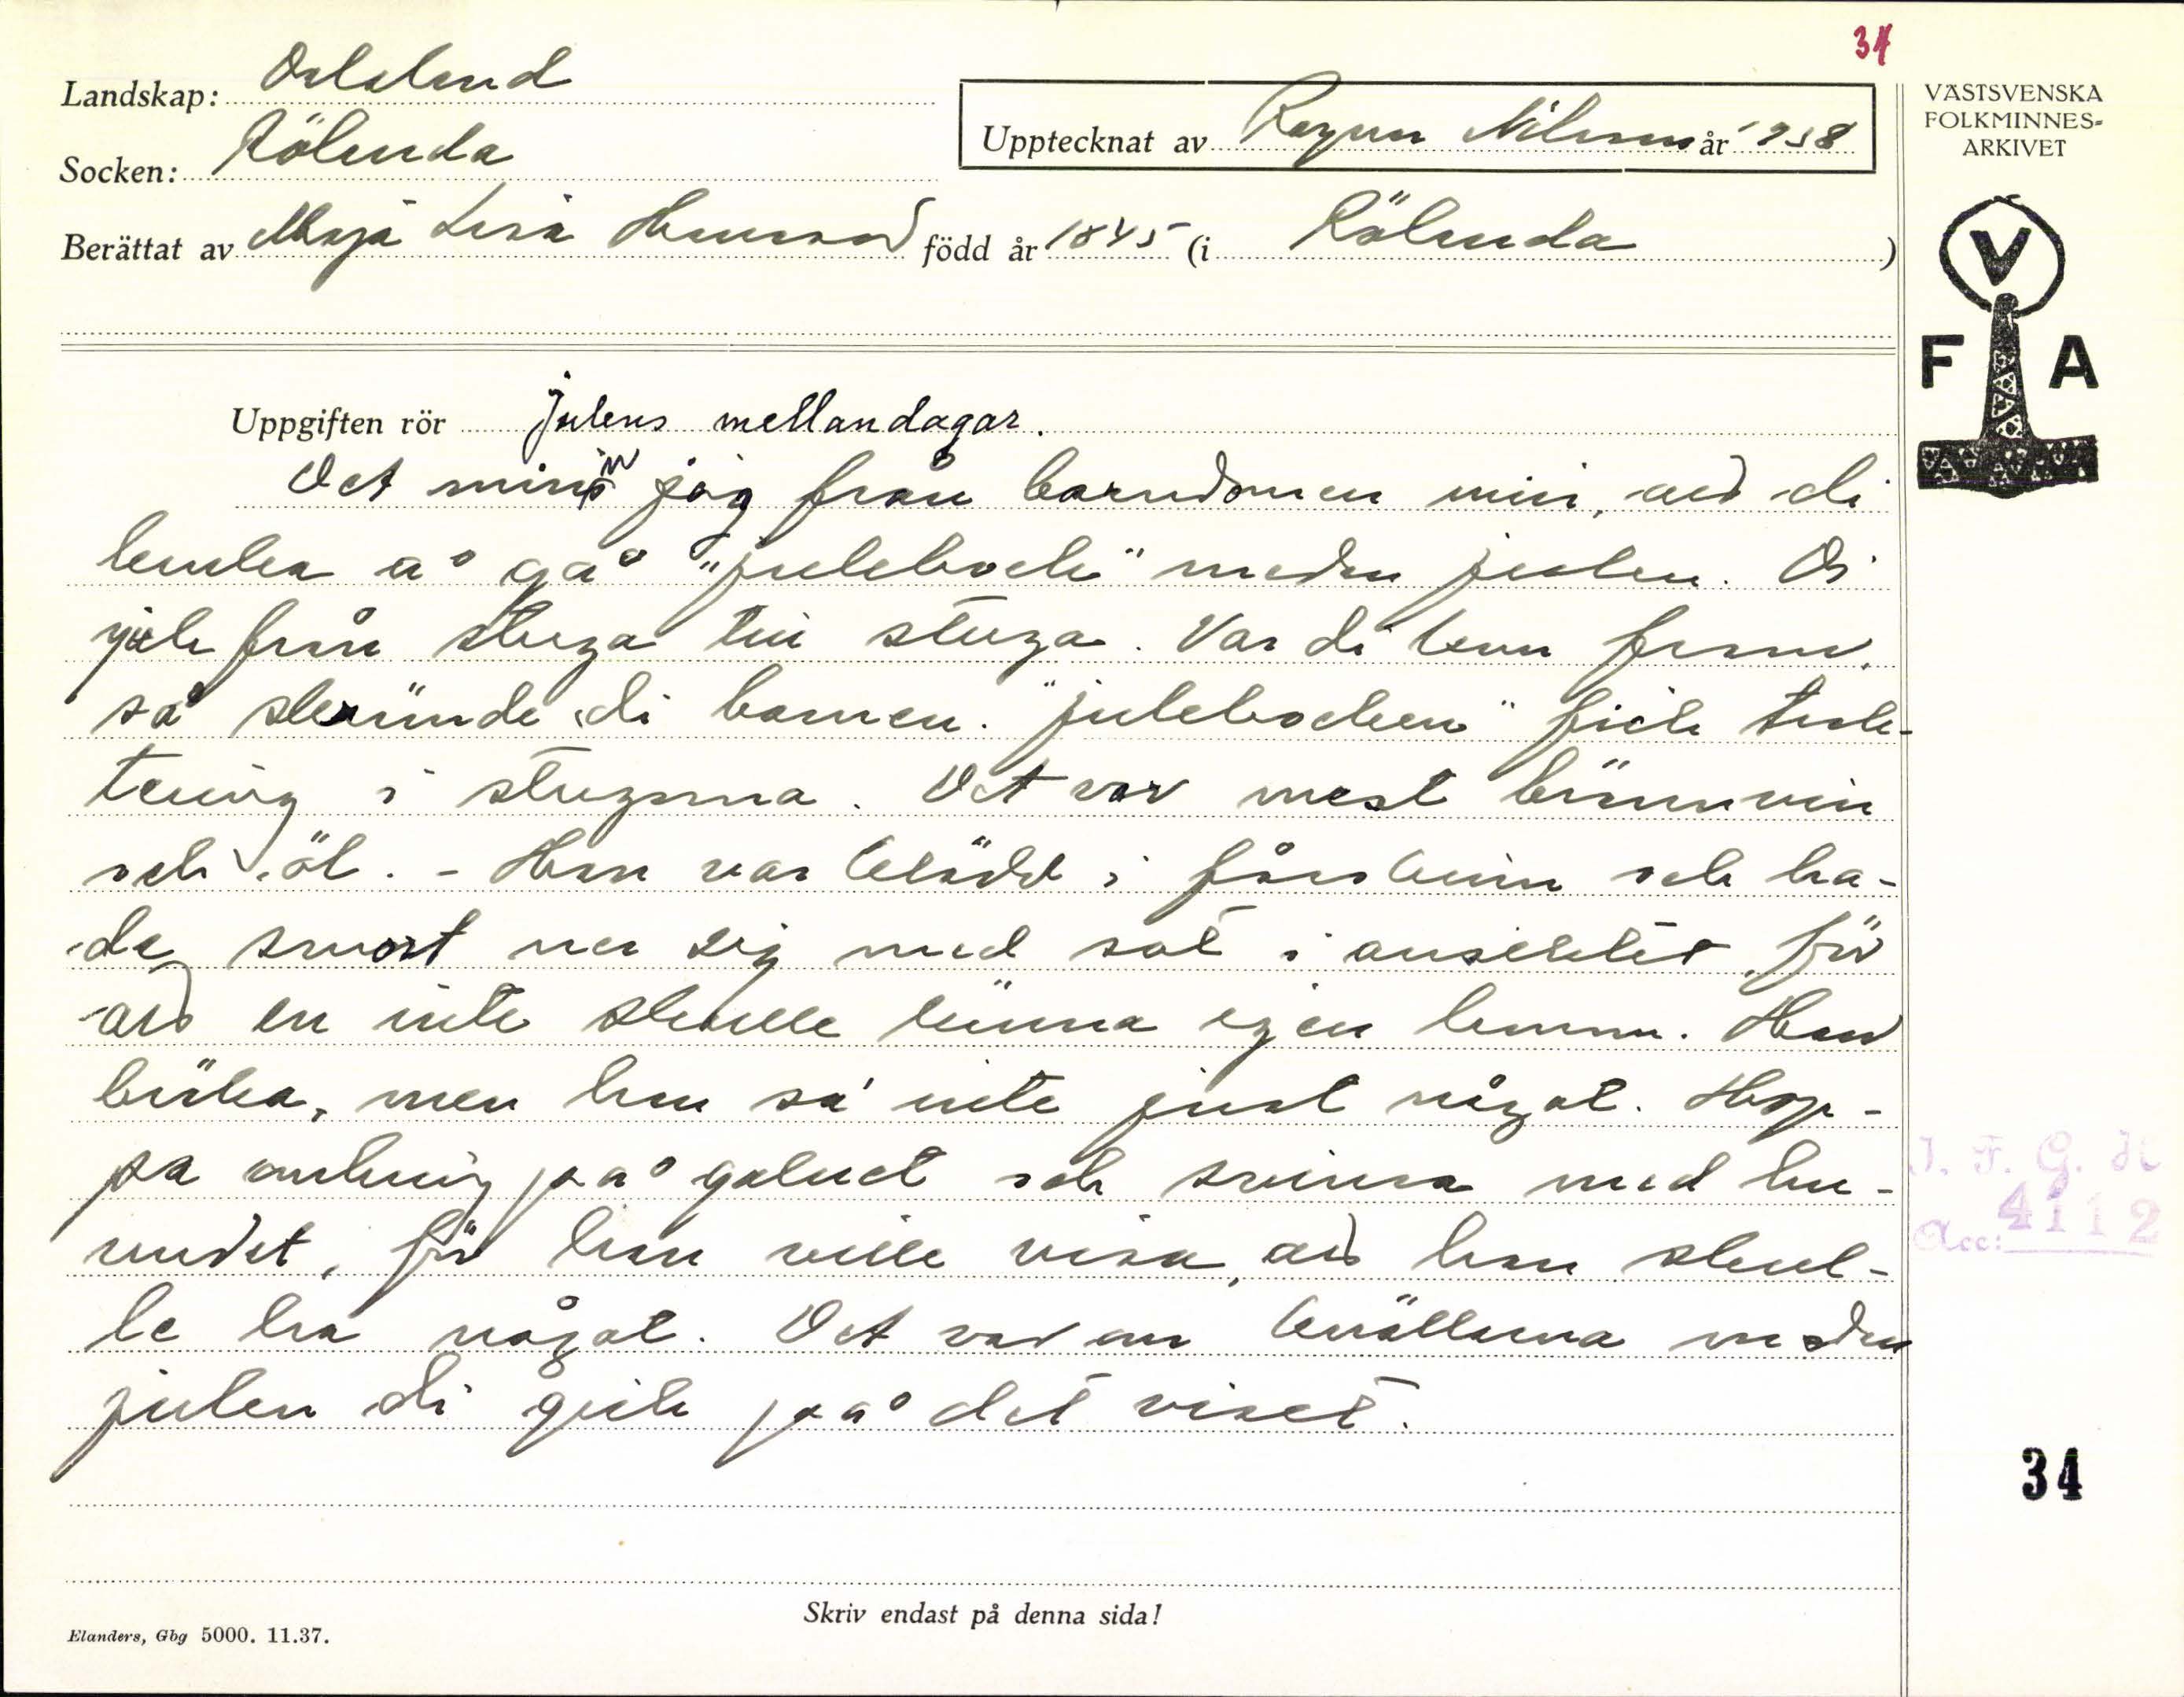 34
Landskap: Dalsland
Socken: Rölanda
Upptecknat av Ragnar Nilsson år 1938
Berättat av Maja Lisa Hansson född år 1845 (i Rölanda )
VÄSTSVENSKA
FOLKMINNES-
ARKIVET
V
F A
Uppgiften rör Julens mellandagar.
Det minns jag från barndomen min, att di
bruka å gå "julebock" medan julen. Di
gick från stuga till stuga. Var di kom fram,
så skrämde di barnen. "Julebocken" fick trak-
tering i stugorna. Det var mest brännvin
och öl. - Han var klädd i fårskinn och ha-
de smort ner sig med sot i ansiktet, för
att en inte skulle känna igen honom. Han
bräka, men han sa' inte just något. Hop-
pa omkring på golvet och svinga med hu-
vudet, för han ville visa, att han skul-
le ha något. Det var om kvällarna medan
julen di gick på det viset.
I. F. G. H
Acc: 4112
34
Skriv endast på denna sida!
Elanders, Gbg 5000. 11.37.